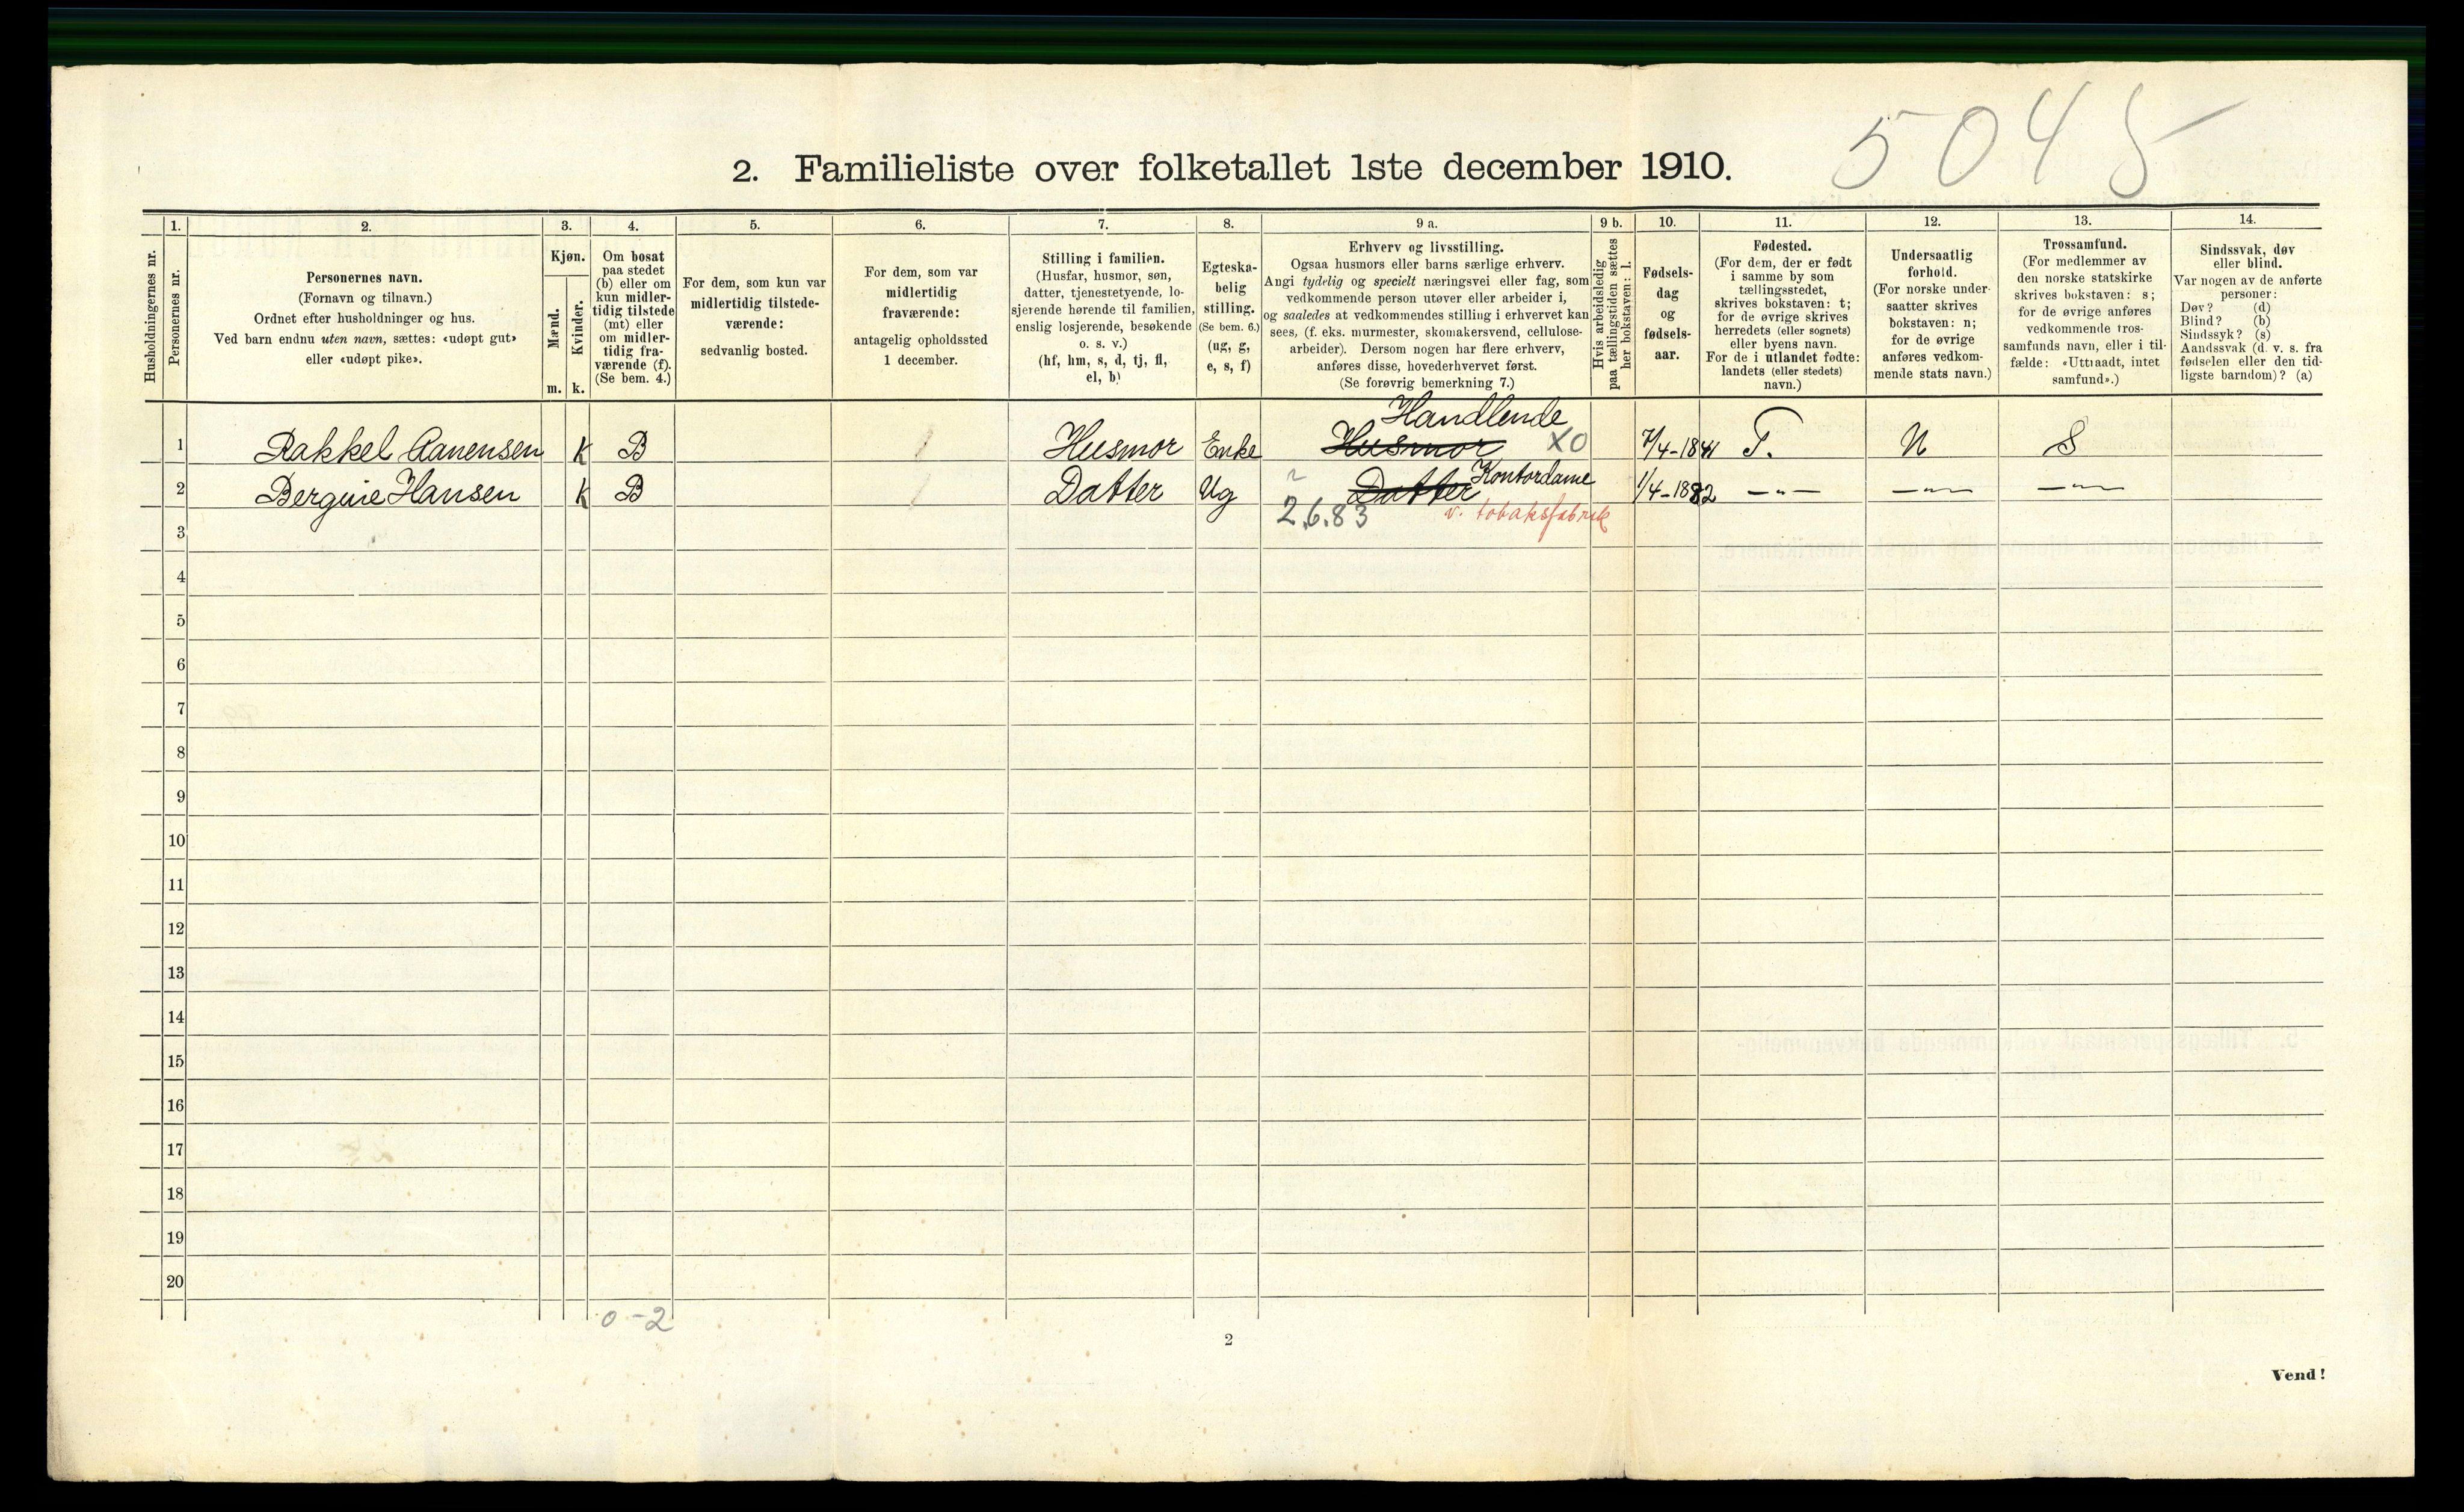 5045
2. Familieliste over folketallet 1ste december 1910.
Husholdningernes nr.
1.
Personernes nr.
2.
Personernes navn.
(Fornavn og tilnavn.)
Ordnet efter husholdninger og hus.
Ved barn endnu uten navn, sættes: «udøpt gut»
eller «udøpt pike».
3.
Kjøn.
Mænd.
Kvinder.
m. k.
4.
Om bosat
paa stedet
(b) eller om
kun midler-
tidig tilstede
(mt) eller
om midler-
tidig fra-
værende (f).
(Se bem. 4.)
5.
For dem, som kun var
midlertidig tilstede-
værende:
sedvanlig bosted.
6.
For dem, som var
midlertidig
fraværende:
antagelig opholdssted
1 december.
7.
Stilling i familien.
(Husfar, husmor, søn,
datter, tjenestetyende, lo-
sjerende hørende til familien,
enslig losjerende, besøkende
o. s. v.)
(hf, hm, s, d, tj, fl,
el, b)
8.
Egteska-
belig
stilling.
(Se bem. 6.)
(ug, g,
e, s, f)
9 a.
Erhverv og livsstilling.
Ogsaa husmors eller barns særlige erhverv.
Angi tydelig og specielt næringsvei eller fag, som
vedkommende person utøver eller arbeider i,
og saaledes at vedkommendes stilling i erhvervet kan
sees, (f. eks. murmester, skomakersvend, cellulose-
arbeider). Dersom nogen har flere erhverv,
anføres disse, hovederhvervet først.
(Se forøvrig bemerkning 7.)
9 b.
Hvis arbeidsledig
paa tællingstiden sættes
her bokstaven: l.
10.
Fødsels-
dag
og
fødsels-
aar.
11.
Fødested.
(For dem, der er født
i samme by som
tællingsstedet,
skrives bokstaven: t;
for de øvrige skrives
herredets (eller sognets)
eller byens navn.
For de i utlandet fødte:
landets (eller stedets)
navn.)
12.
Undersaatlig
forhold.
(For norske under-
saatter skrives
bokstaven: n;
for de øvrige
anføres vedkom-
mende stats navn.)
13.
Trossamfund.
(For medlemmer av
den norske statskirke
skrives bokstaven: s;
for de øvrige anføres
vedkommende tros-
samfunds navn, eller i til-
fælde: «Uttraadt, intet
samfund».)
14.
Sindssvak, døv
eller blind.
Var nogen av de anførte
personer:
Døv? (d)
Blind? (b)
Sindssyk? (s)
Aandssvak (d. v. s. fra
fødselen eller den tid-
ligste barndom)? (a)
Handlende
1 Rakkel Aanensen K B Husmor Enke Husmor XO 7/4-1841 T. N S
2 Bergine Hansen K B Datter Ug Datter Kontordame 1/4-1882 -"- -"- -"-
2.6.83 v. tobaksfabrik
3
4
5
6
7
8
9
10
11
12
13
14
15
16
17
18
19
20
0-2
2
Vend!